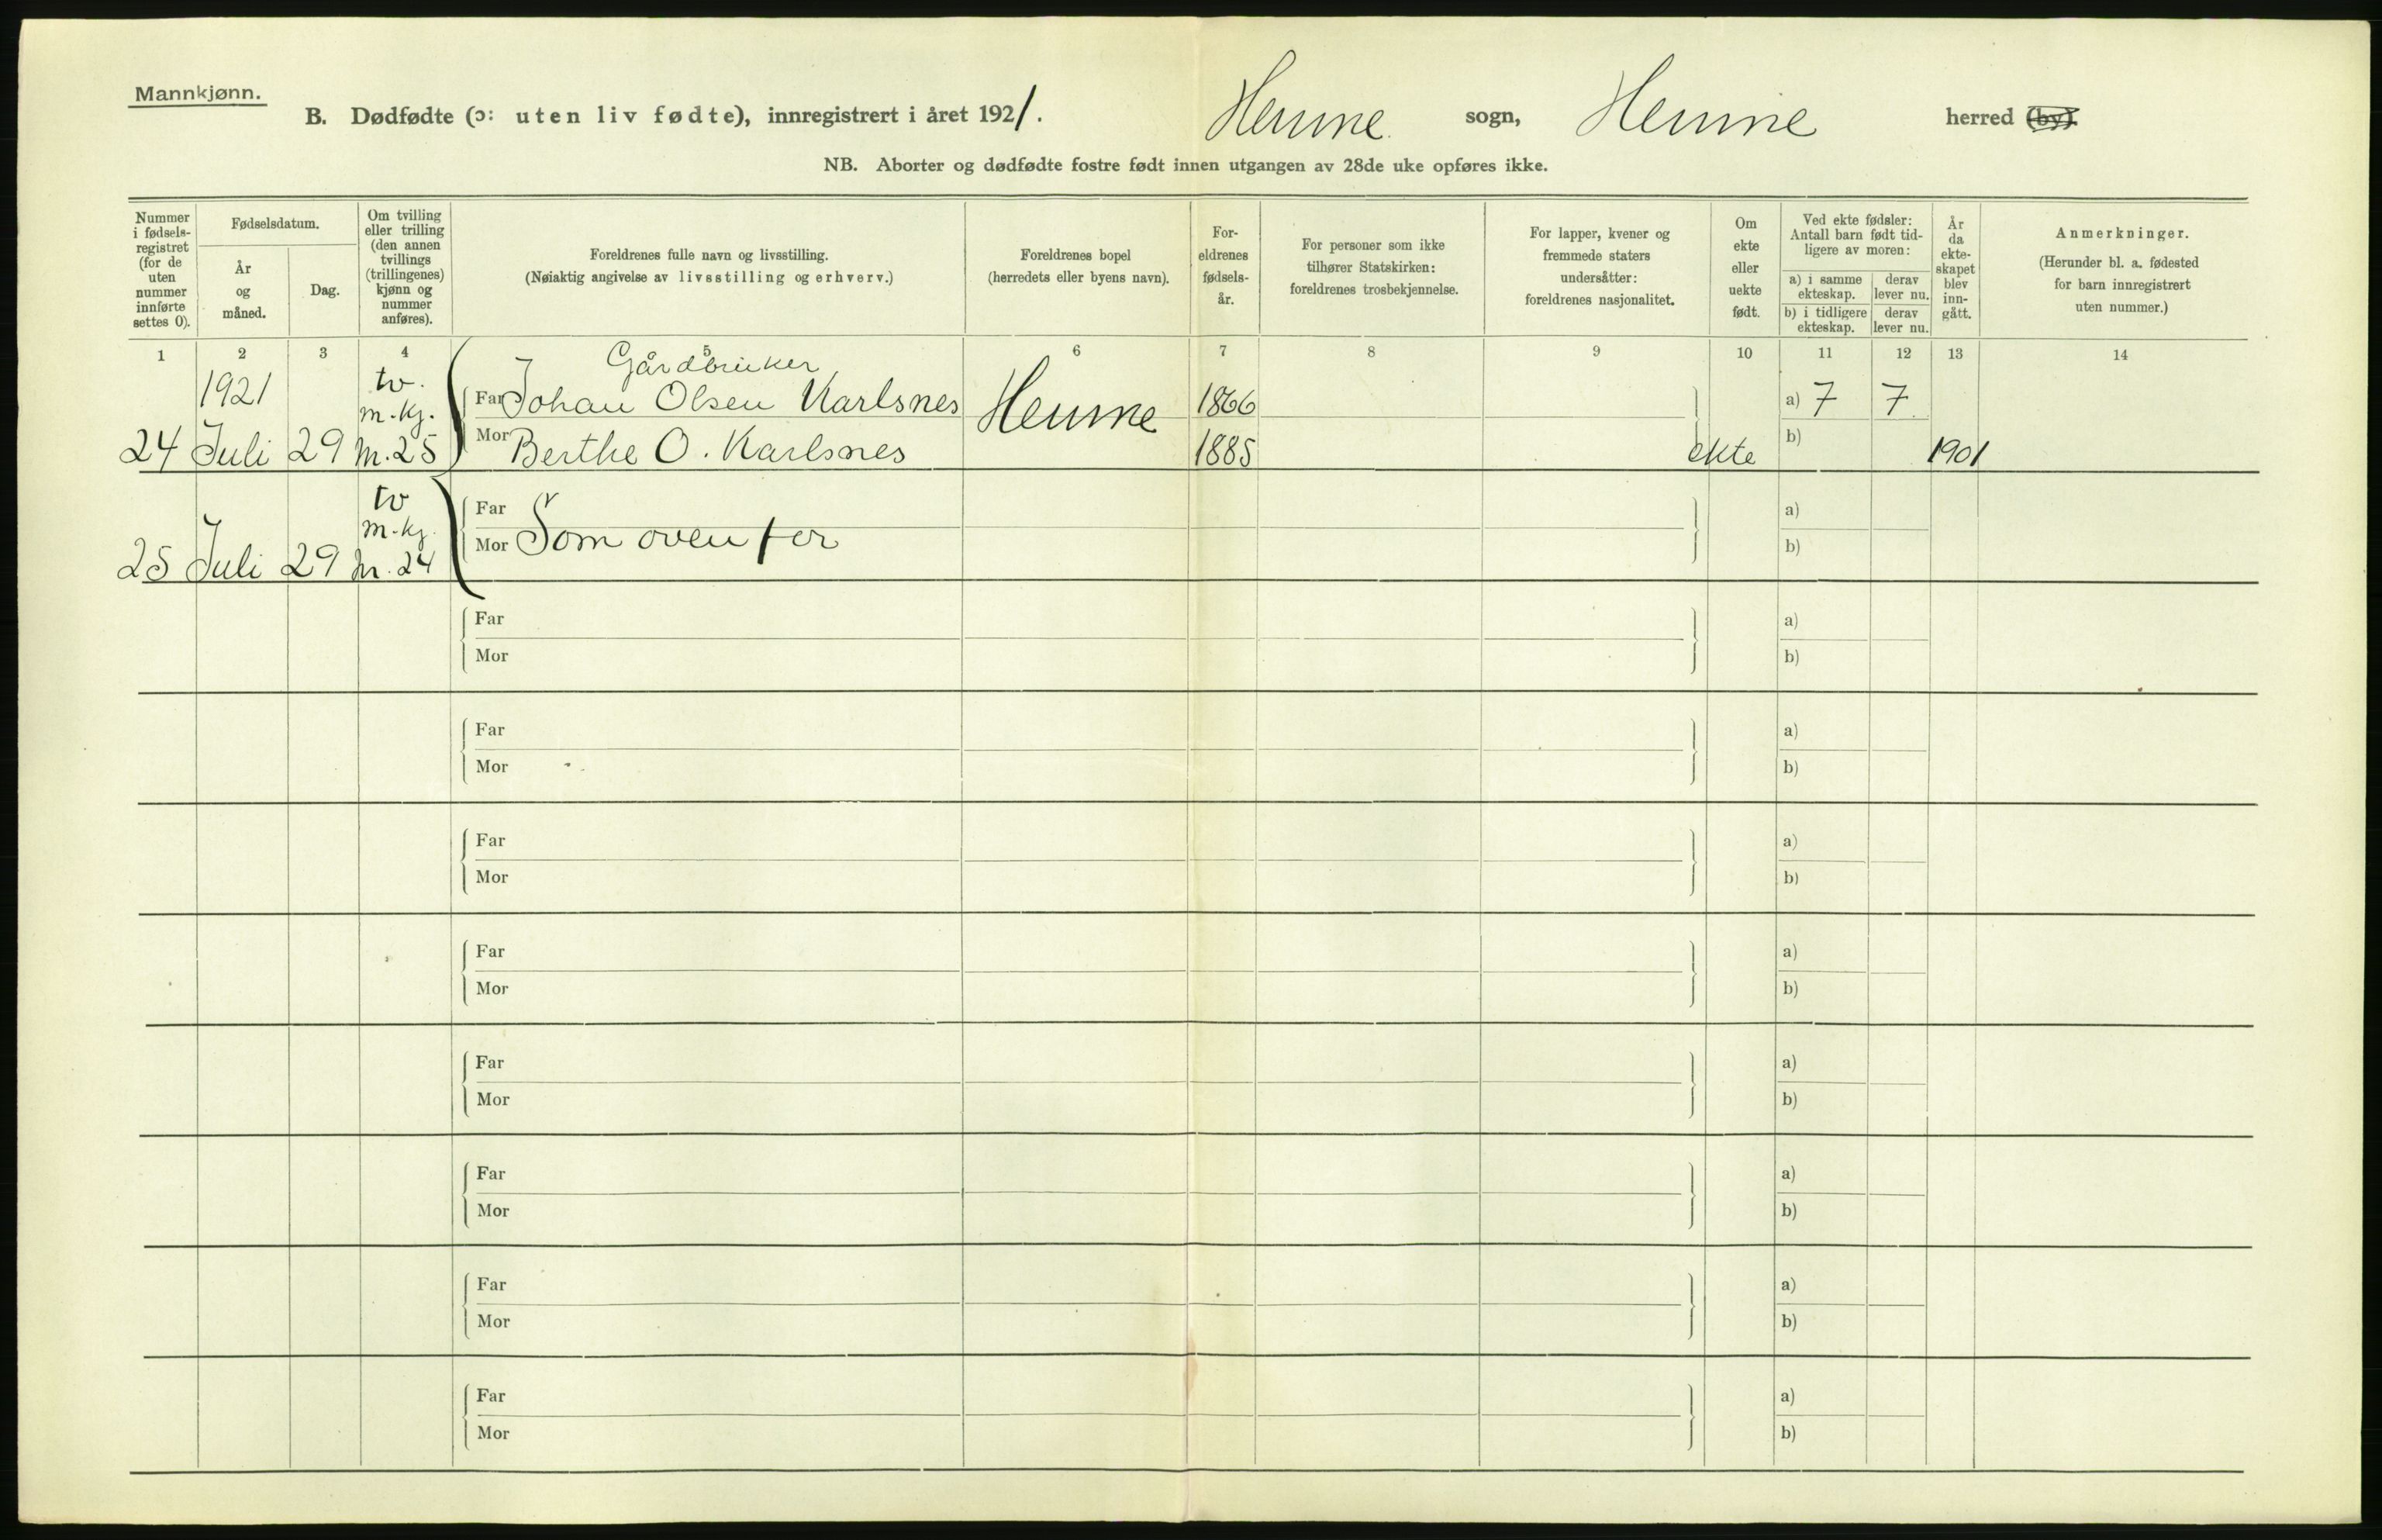 Mannkjønn.
B. Dødfødte (ɔ: uten liv fødte), innregistrert i året 1921. Hemne sogn, Hemne herred (by).
NB. Aborter og dødfødte fostre født innen utgangen av 28de uke opføres ikke.
Nummer i fødsels-registret (for de uten nummer innførte settes 0).
Fødselsdatum.
År og måned.
Dag.
Om tvilling eller trilling (den annen tvillings (trillingenes) kjønn og nummer anføres).
Foreldrenes fulle navn og livsstilling.
(Nøiaktig angivelse av livsstilling og erhverv.)
Foreldrenes bopel
(herredets eller byens navn).
For-eldrenes fødsels-år.
For personer som ikke tilhører Statskirken: foreldrenes trosbekjennelse.
For lapper, kvener og fremmede staters undersåtter: foreldrenes nasjonalitet.
Om ekte eller uekte født.
Ved ekte fødsler: Antall barn født tid-ligere av moren:
a) i samme ekteskap.
derav lever nu.
b) i tidligere ekteskap.
derav lever nu.
År da ekte-skapet blev inn-gått.
Anmerkninger.
(Herunder bl. a. fødested for barn innregistrert uten nummer.)
1 2 3 4 5 6 7 8 9 10 11 12 13 14
Gårdbruker
1921 tv. m.kj. Far Johan Olsen Karlsnes Hemne 1866 a) 7 7
24 Juli 29 nr. 25 Mor Berthe O. Karlsnes 1885 ekte b) 1901
tv m.kj. Far a)
25 Juli 29 nr. 24 Mor Som ovenfor b)
Far a)
Mor b)
Far a)
Mor b)
Far a)
Mor b)
Far a)
Mor b)
Far a)
Mor b)
Far a)
Mor b)
Far a)
Mor b)
Far a)
Mor b)